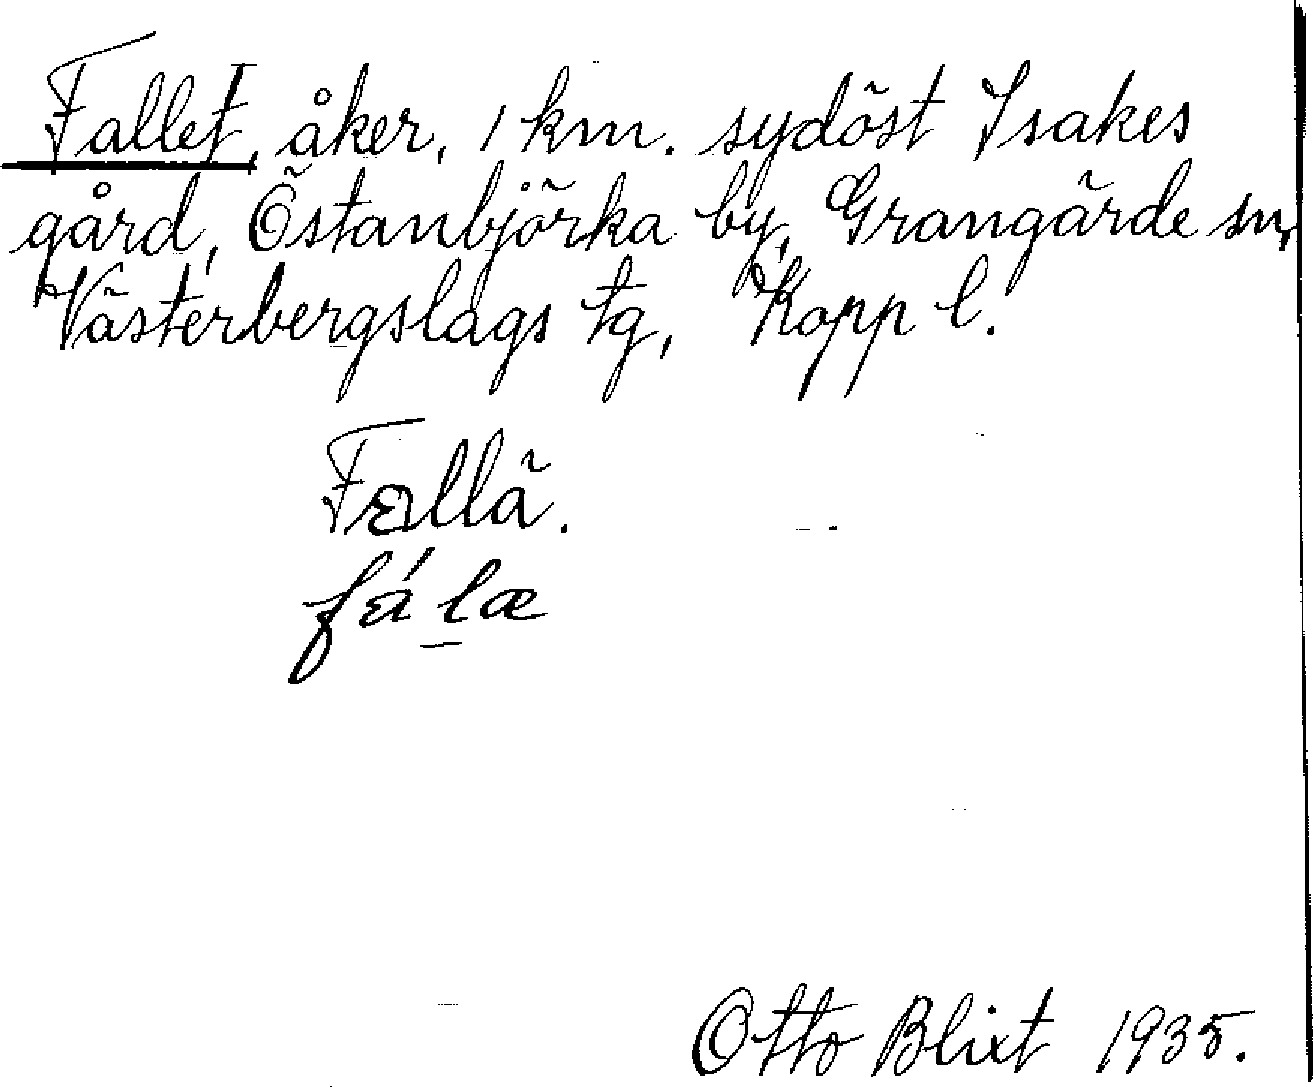 Fallet, åker, 1 km. sydöst Isakes
gård, Östanbjörka by, Grangärde sn,
Västerbergslags tg, Kopp l.
Fallä.
Otto Blixt 1935.